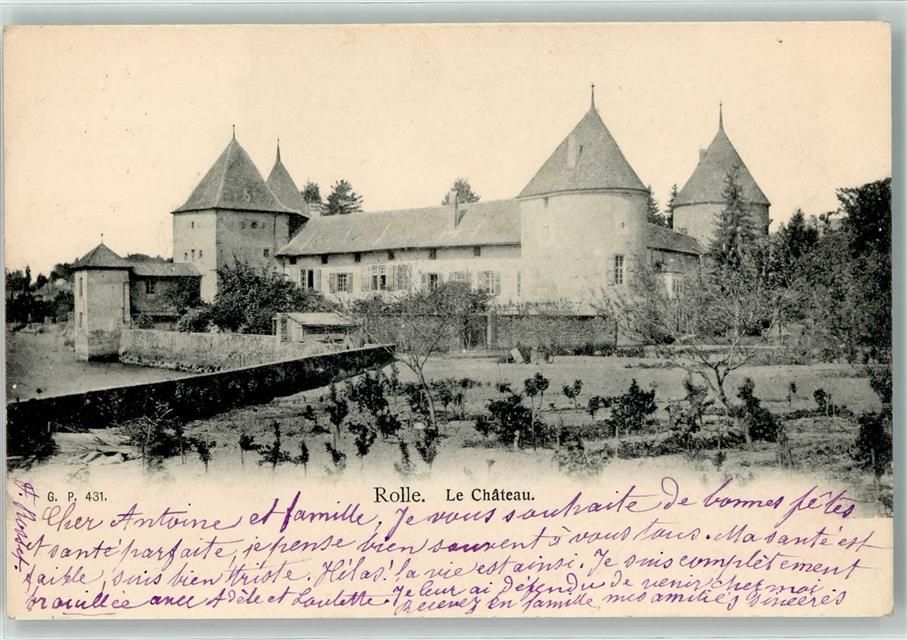 G. P. 431.
Rolle. Le Château.
Cher Antoine et famille, Je vous souhaite de bonnes fêtes
et santé parfaite, je pense bien souvent à vous tous. Ma santé est
faible, suis bien triste. Hélas! la vie est ainsi. Je suis complètement
brouillée avec Adèle et Loulette. Je leur ai défendu de venir chez moi
Recevez en famille, mes amitiés sincères